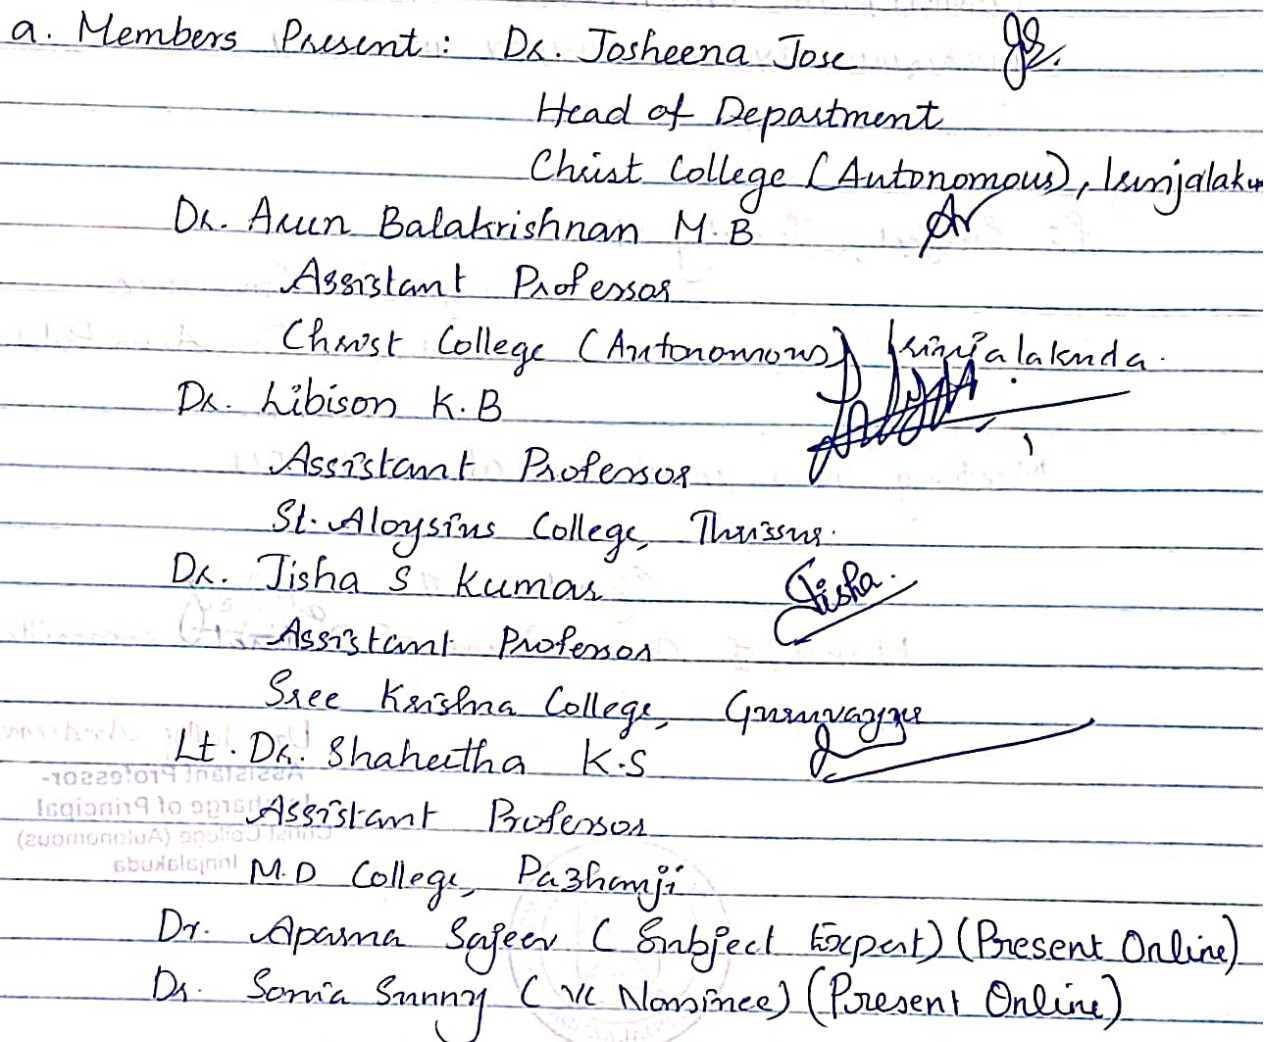 a. Members Present : Dr. Josheena Jose
Head of Department
Christ College (Autonomous), Irinjalaku
Dr. Arun Balakrishnan M.B
Assistant Professor
Christ College (Autonomous) Irinjalakuda.
Dr. Libison K.B
Assistant Professor
St. Aloysius College, Thrissur.
Dr. Jisha S Kumar
Jisha.
Assistant Professor
Sree Krishna College, Guruvayyur
Lt. Dr. Shaheetha K.S
Assistant Professor
M.D College, Pazhanji
Dr. Aparna Sajeev (Subject Expert) (Present Online)
Dr. Sonia Sunny (VC Nominee) (Present Online)
Assistant Professor-
charge of Principal
Christ College (Autonomous)
Irinjalakuda